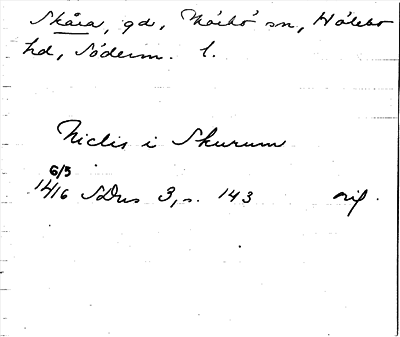 Skåra, gd, Mörkö sn, Hölebo
hd, Söderm. l.
Niclis i Skurum
6/5
1416 SDns 3, s. 143 orig.